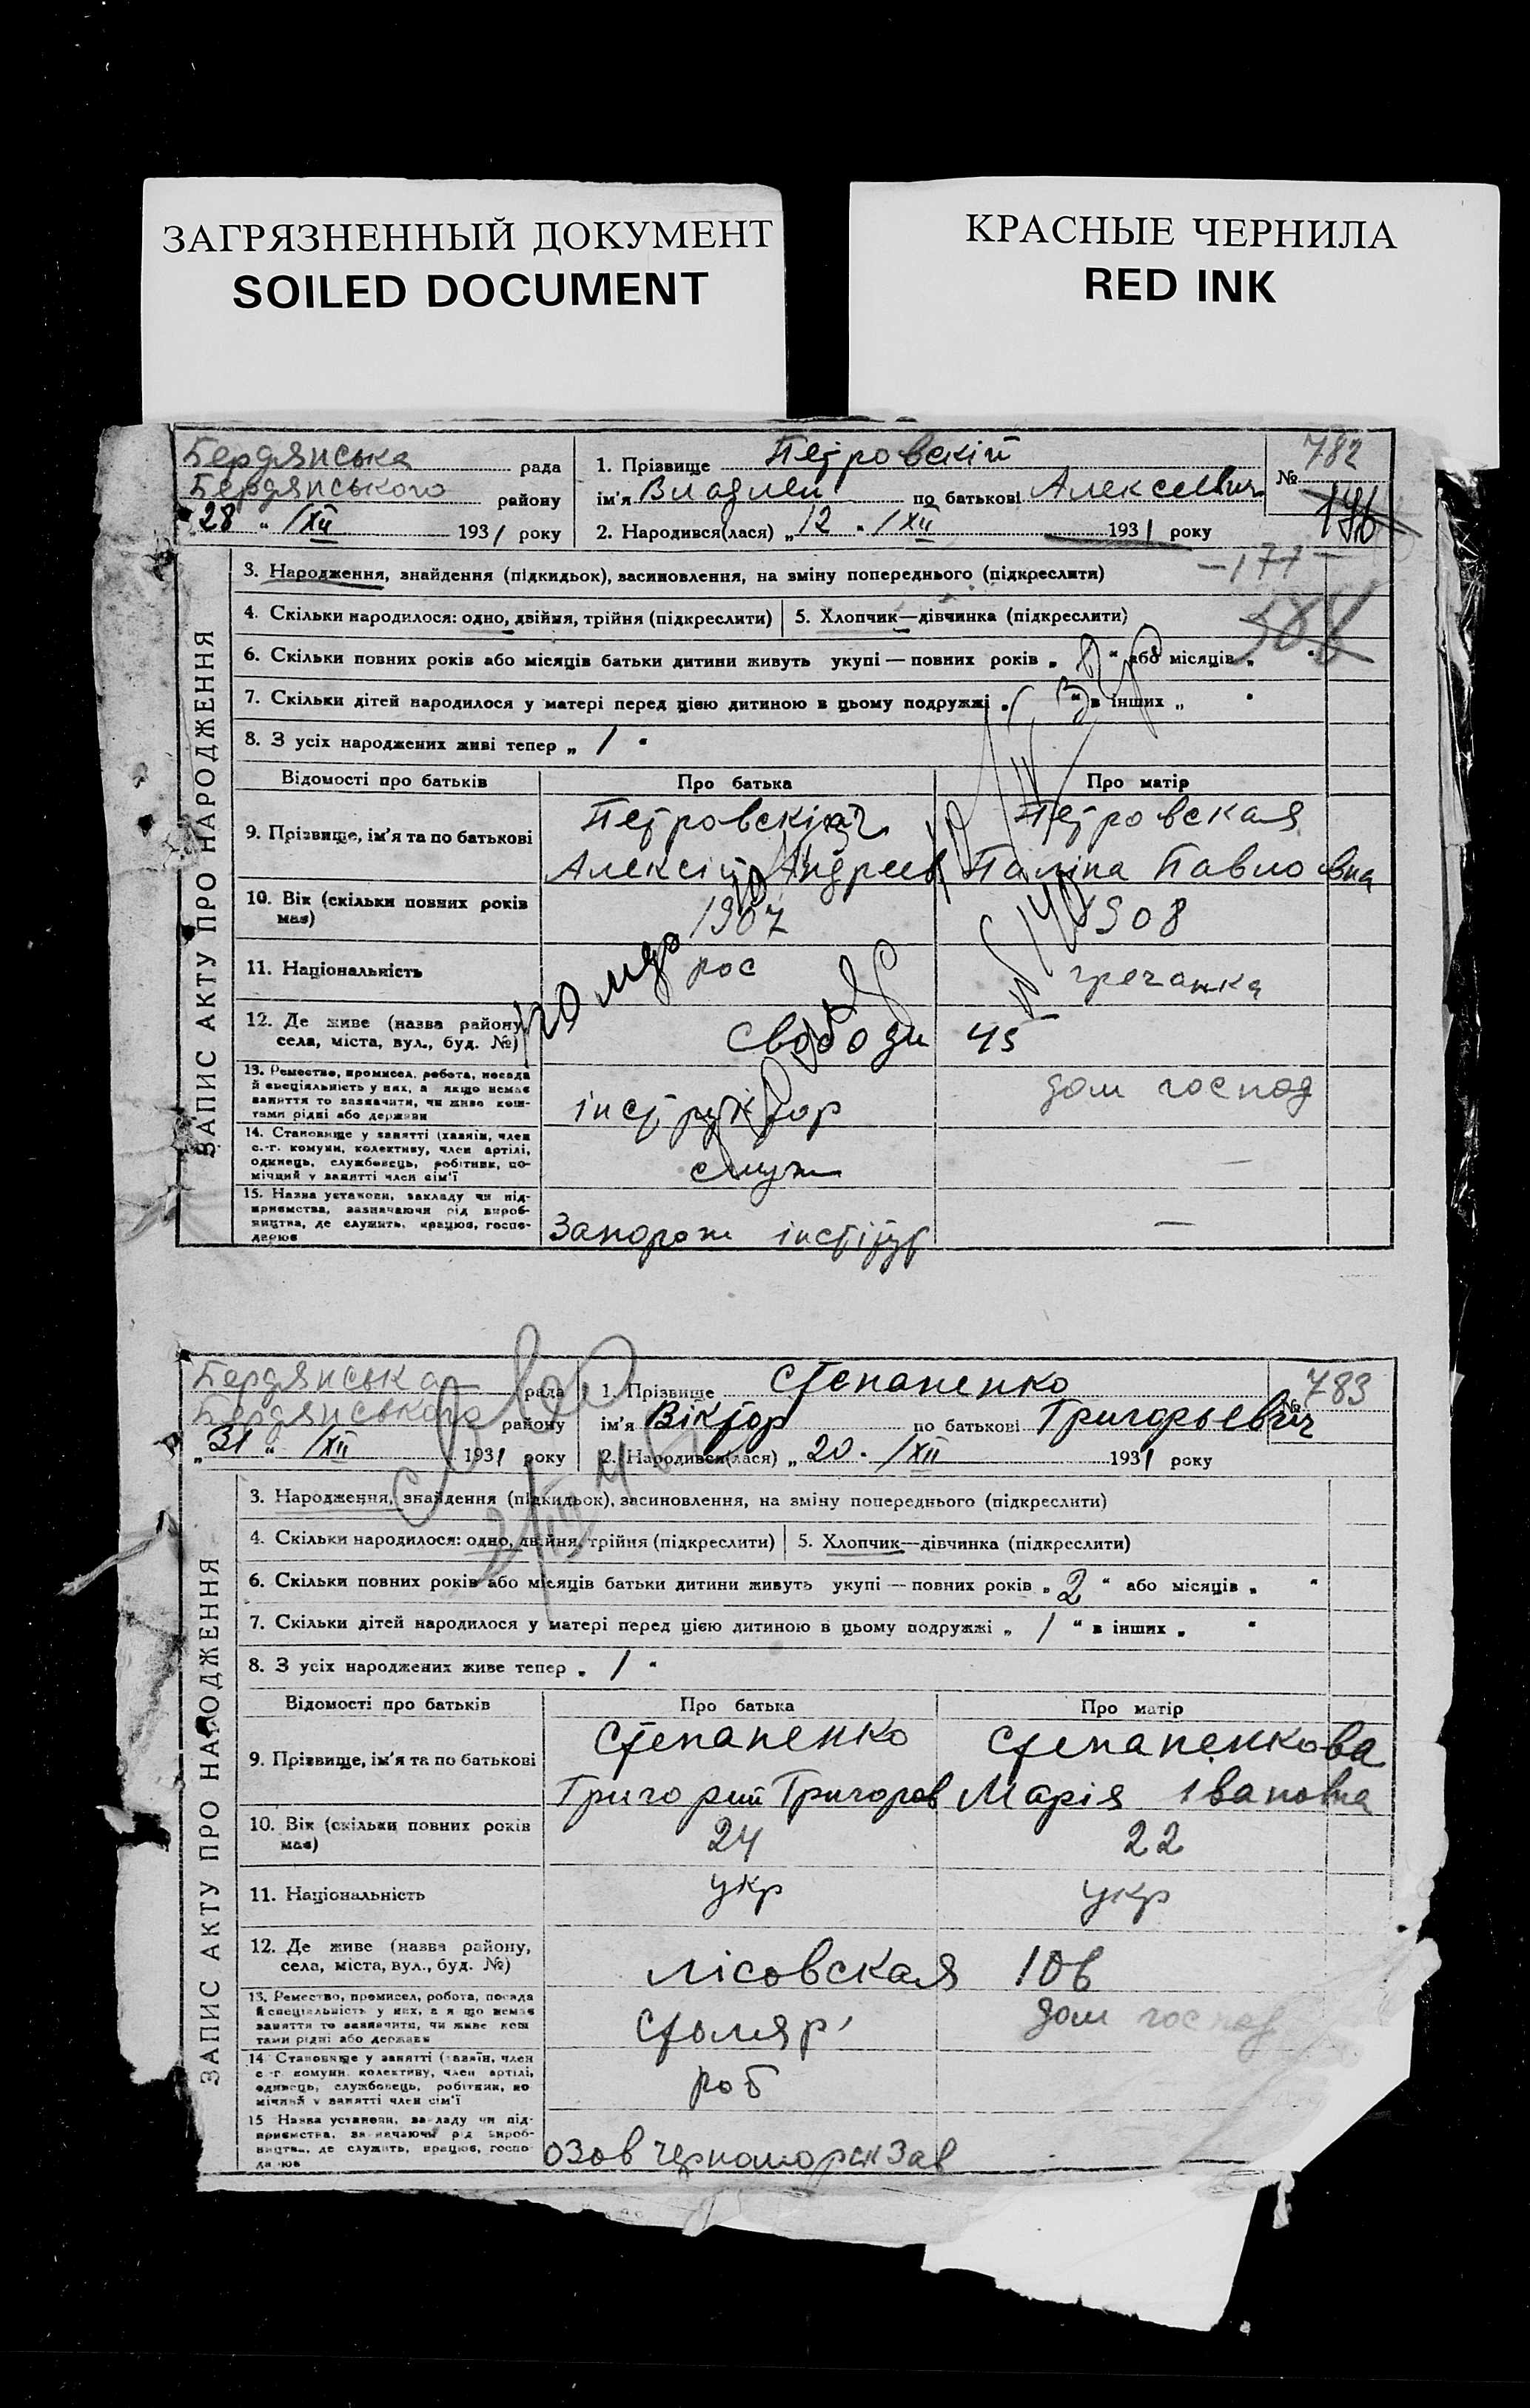 ЗАГРЯЗНЕННЫЙ ДОКУМЕНТ
SOILED DOCUMENT
КРАСНЫЕ ЧЕРНИЛА
RED INK
ЗАПИС АКТУ ПРО НАРОДЖЕННЯ
Бердянська рада
Бердянського району
„28“ /XII 1931 року
1. Прізвище Петровскій
ім'я Владлен по батькові Алексеевич
2. Народився(лася) „12“ /XII 1931 року
№ 782
196
–177–
3. Народження, знайдення (підкидьок), засиновлення, на зміну попереднього (підкреслити)
4. Скільки народилося: одно, двійня, трійня (підкреслити) 5. Хлопчик—дівчинка (підкреслити)
6. Скільки повних років або місяців батьки дитини живуть укупі — повних років „ “ або місяців „ “
7. Скільки дітей народилося у матері перед цією дитиною в цьому подружжі „ “ в інших „ “
8. З усіх народжених живі тепер „ 1 “
Відомості про батьків Про батька Про матір
9. Прізвище, ім'я та по батькові
Петровскій Петровская
Алексій Андреев Паліна Павловна
10. Вік (скільки повних років має) 1907 1908
11. Національність рос гречанка
12. Де живе (назва району, села, міста, вул., буд. №) Свободи 45
13. Ремество, промисел, робота, посада й спеціяльність у них, а якщо немає заняття то зазначити, чи живе коштами рідні або держави
інструктор дом господ
14. Становище у занятті (хазяїн, член с.-г. комуни, колективу, член артілі, одинець, службовець, робітник, помічний у занятті член сім'ї
служ —
15. Назва установи, закладу чи підприємства, зазначаючи рід виробництва, де служить, працює, господарює
Запорож інстітут —
ЗАПИС АКТУ ПРО НАРОДЖЕННЯ
Бердянська рада
Бердянського району
„31“ /XII 1931 року
1. Прізвище Степаненко
ім'я Віктор по батькові Григорьевич
2. Народився(лася) „20“ /XII 1931 року
№ 783
3. Народження, знайдення (підкидьок), засиновлення, на зміну попереднього (підкреслити)
4. Скільки народилося: одно, двійня, трійня (підкреслити) 5. Хлопчик—дівчинка (підкреслити)
6. Скільки повних років або місяців батьки дитини живуть укупі — повних років „ 2 “ або місяців „ “
7. Скільки дітей народилося у матері перед цією дитиною в цьому подружжі „ 1 “ в інших „ “
8. З усіх народжених живе тепер „ 1 “
Відомості про батьків Про батька Про матір
9. Прізвище, ім'я та по батькові
Степаненко Степаненкова
Григорий Григоров Марія Івановна
10. Вік (скільки повних років має) 24 22
11. Національність укр укр
12. Де живе (назва району, села, міста, вул., буд. №) Лісовская 106
13. Ремество, промисел, робота, посада й спеціяльність у них, а якщо немає заняття то зазначити, чи живе коштами рідні або держави
столяр дом господ
14. Становище у занятті (хазяїн, член с.-г. комуни, колективу, член артілі, одинець, службовець, робітник, помічний у занятті член сім'ї
роб
15. Назва установи, закладу чи підприємства, зазначаючи рід виробництва, де служить, працює, господарює
Озов Черноморск Зав